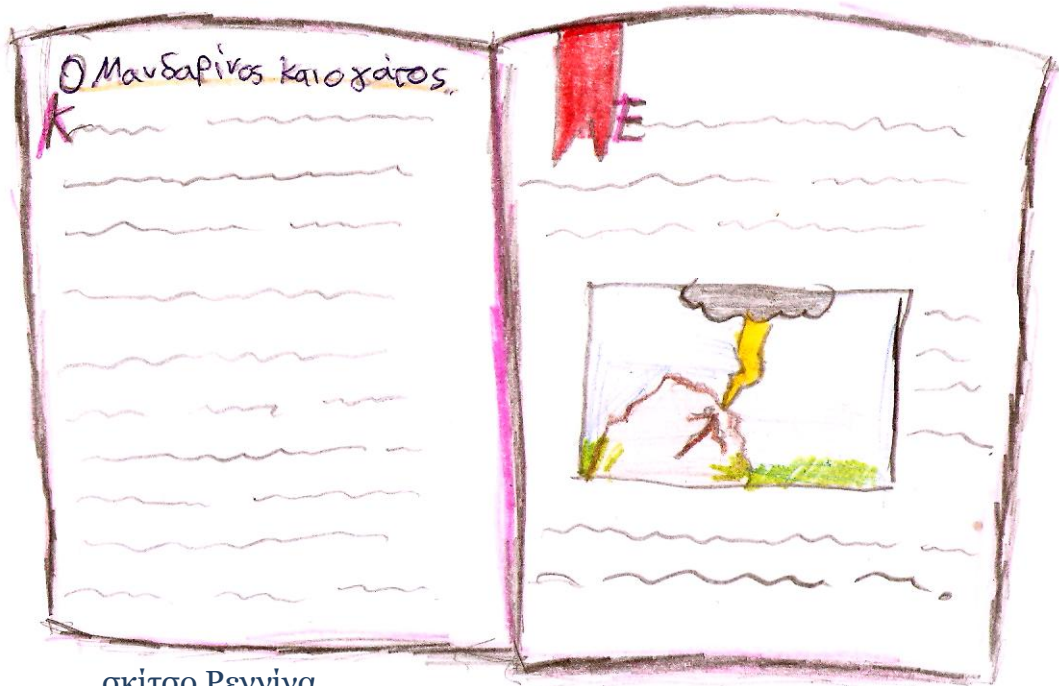 Ο Μανδαρίνος και ο γάτος..
Κ
Ε
σκίτσο Ρεγγίνα